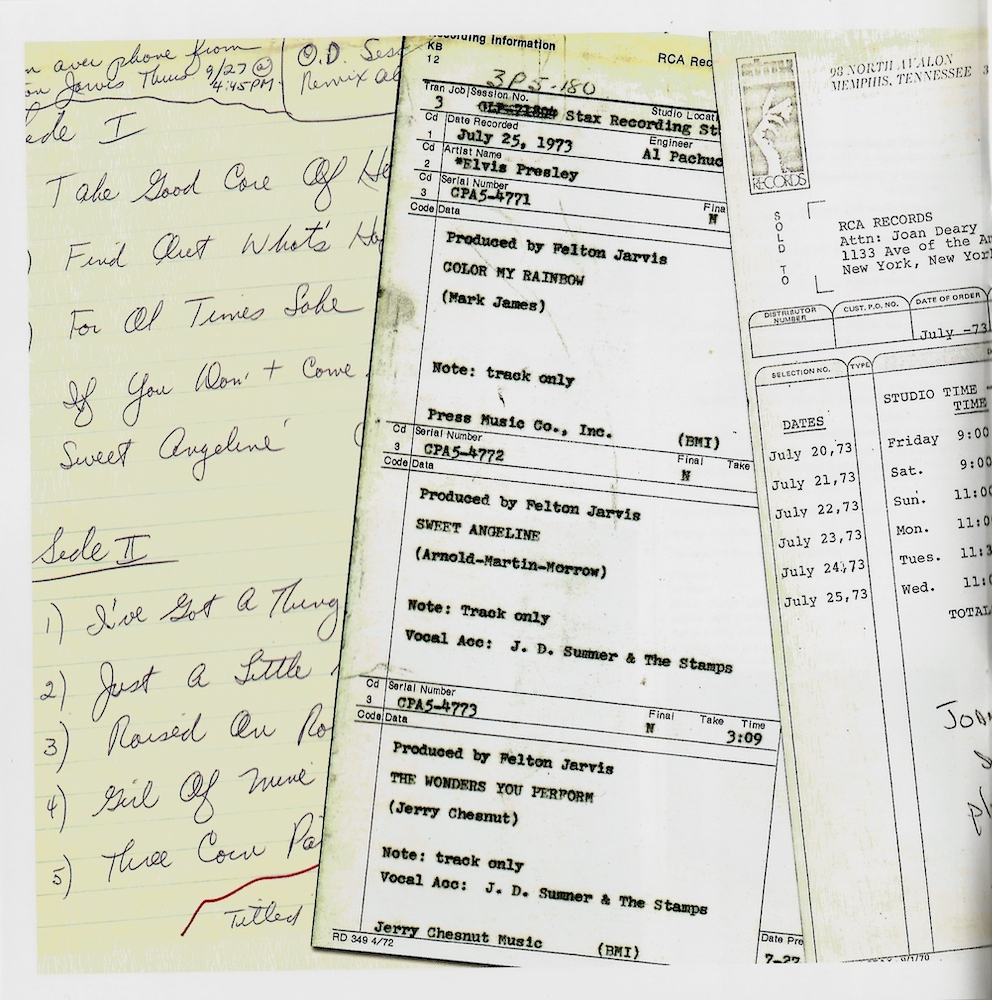 n over phone from
on Jarvis Thurs 9/27 @
4:45 PM.
O.D. Sess
Remix al
Side I
Take Good Care Of He
Find Out What's Ha
For Ol Times Sake
If You Don't Come
Sweet Angeline
Side II
1) I've Got A Thing
2) Just A Little
3) Raised On Ro
4) Girl Of Mine
5) Three Corn Pat
Titled
Recording Information
KB
12
RCA Rec
3P5-180
Tran Job Session No.
Studio Locati
3 Stax Recording St
Cd Date Recorded
Engineer
1 July 25, 1973
Al Pachuc
Cd Artist Name
2 *Elvis Presley
Cd Serial Number
Fina
3 CPA5-4771
N
Code Data
Produced by Felton Jarvis
COLOR MY RAINBOW
(Mark James)
Note: track only
Press Music Co., Inc. (BMI)
Cd Serial Number
Final Take
3 CPA5-4772
N
Code Data
Produced by Felton Jarvis
SWEET ANGELINE
(Arnold-Martin-Morrow)
Note: Track only
Vocal Acc: J. D. Sumner & The Stamps
Cd Serial Number
Final Take Time
3 CPA5-4773
N 3:09
Code Data
Produced by Felton Jarvis
THE WONDERS YOU PERFORM
(Jerry Chesnut)
Note: track only
Vocal Acc: J. D. Sumner & The Stamps
Jerry Chesnut Music (BMI)
RD 349 4/72
Date Pre
7-27
98 NORTH AVALON
MEMPHIS, TENNESSEE 3
RECORDS
SOLD TO
RCA RECORDS
Attn: Joan Deary
1133 Ave of the Am
New York, New York
DISTRIBUTOR NUMBER
CUST. P.O. NO.
DATE OF ORDER
July -73
SELECTION NO.
TYPE
STUDIO TIME -
DATES
TIME
July 20,73 Friday 9:00
July 21,73 Sat. 9:00
July 22,73 Sun. 11:00
July 23,73 Mon. 11:0
July 24,73 Tues. 11:3
July 25,73 Wed. 11:
TOTAL